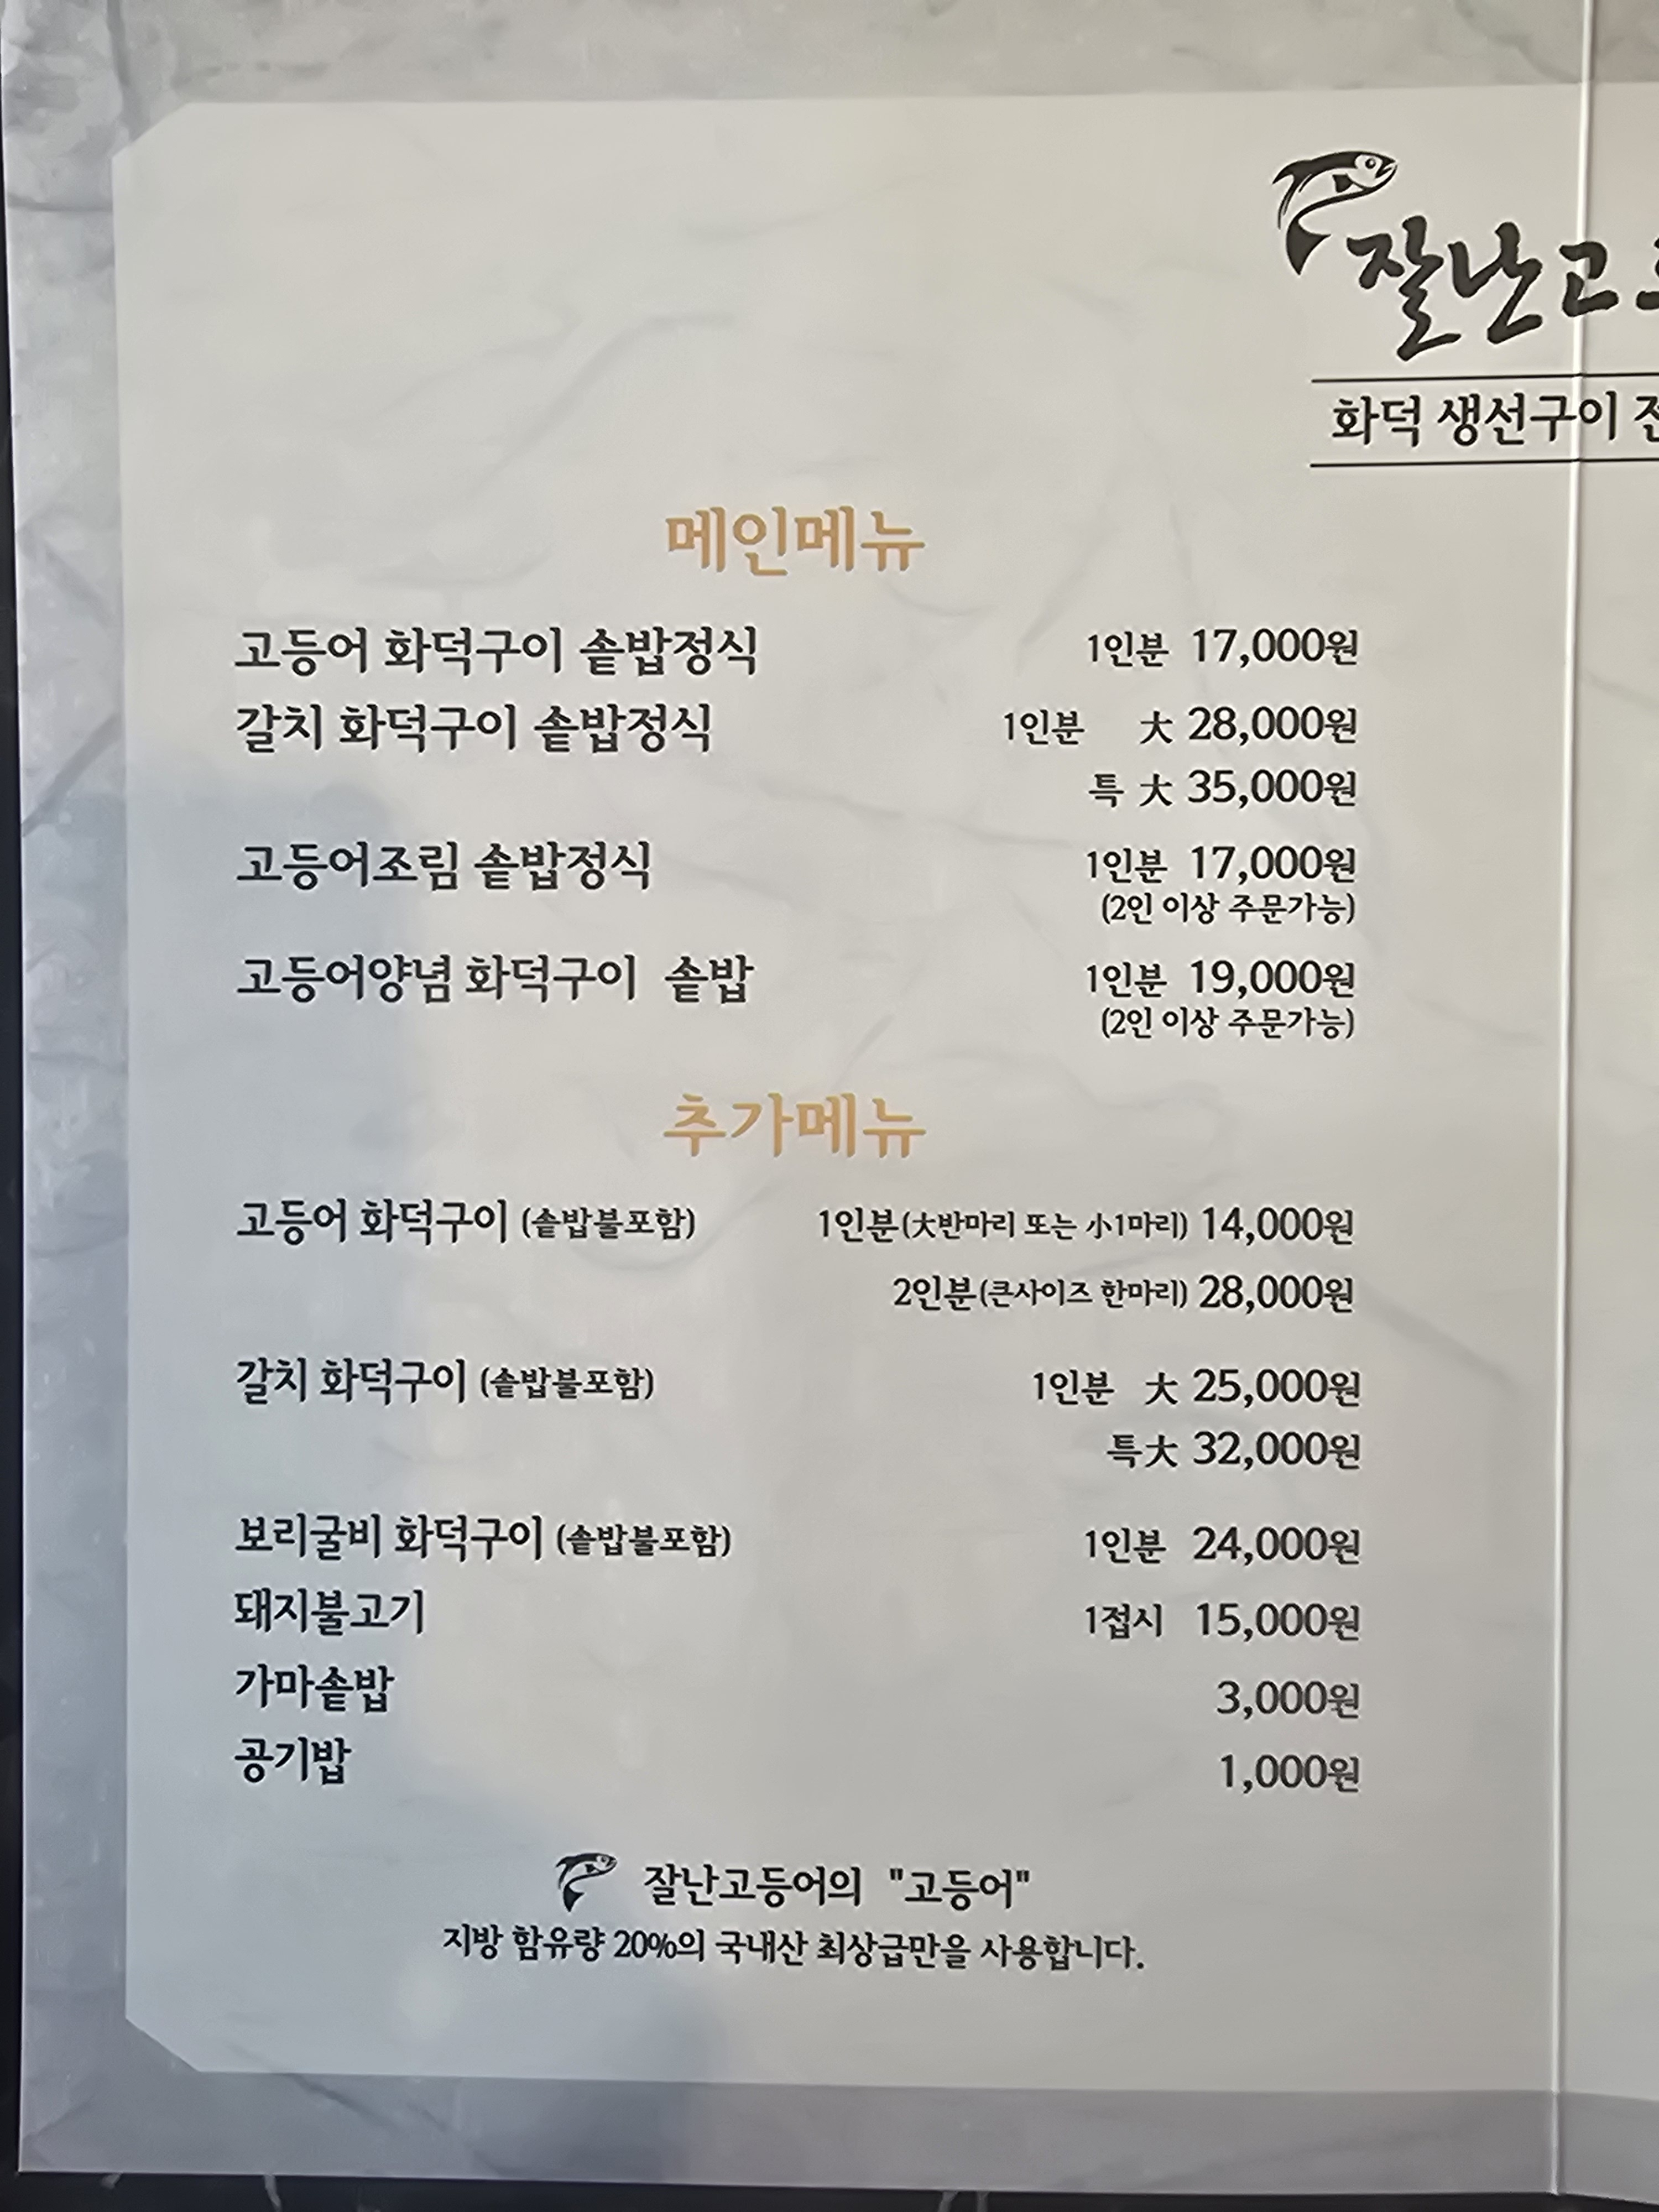 잘난고
화덕 생선구이
메인메뉴
고등어 화덕구이 솥밥정식 1인분 17,000원
갈치 화덕구이 솥밥정식 1인분 大 28,000원
특 大 35,000원
고등어조림 솥밥정식 1인분 17,000원
(2인 이상 주문가능)
고등어양념 화덕구이 솥밥 1인분 19,000원
(2인 이상 주문가능)
추가메뉴
고등어 화덕구이 (솥밥불포함) 1인분(大반마리 또는 小1마리) 14,000원
2인분(큰사이즈 한마리) 28,000원
갈치 화덕구이 (솥밥불포함) 1인분 大 25,000원
특大 32,000원
보리굴비 화덕구이 (솥밥불포함) 1인분 24,000원
돼지불고기 1접시 15,000원
가마솥밥 3,000원
공기밥 1,000원
잘난고등어의 "고등어"
지방 함유량 20%의 국내산 최상급만을 사용합니다.